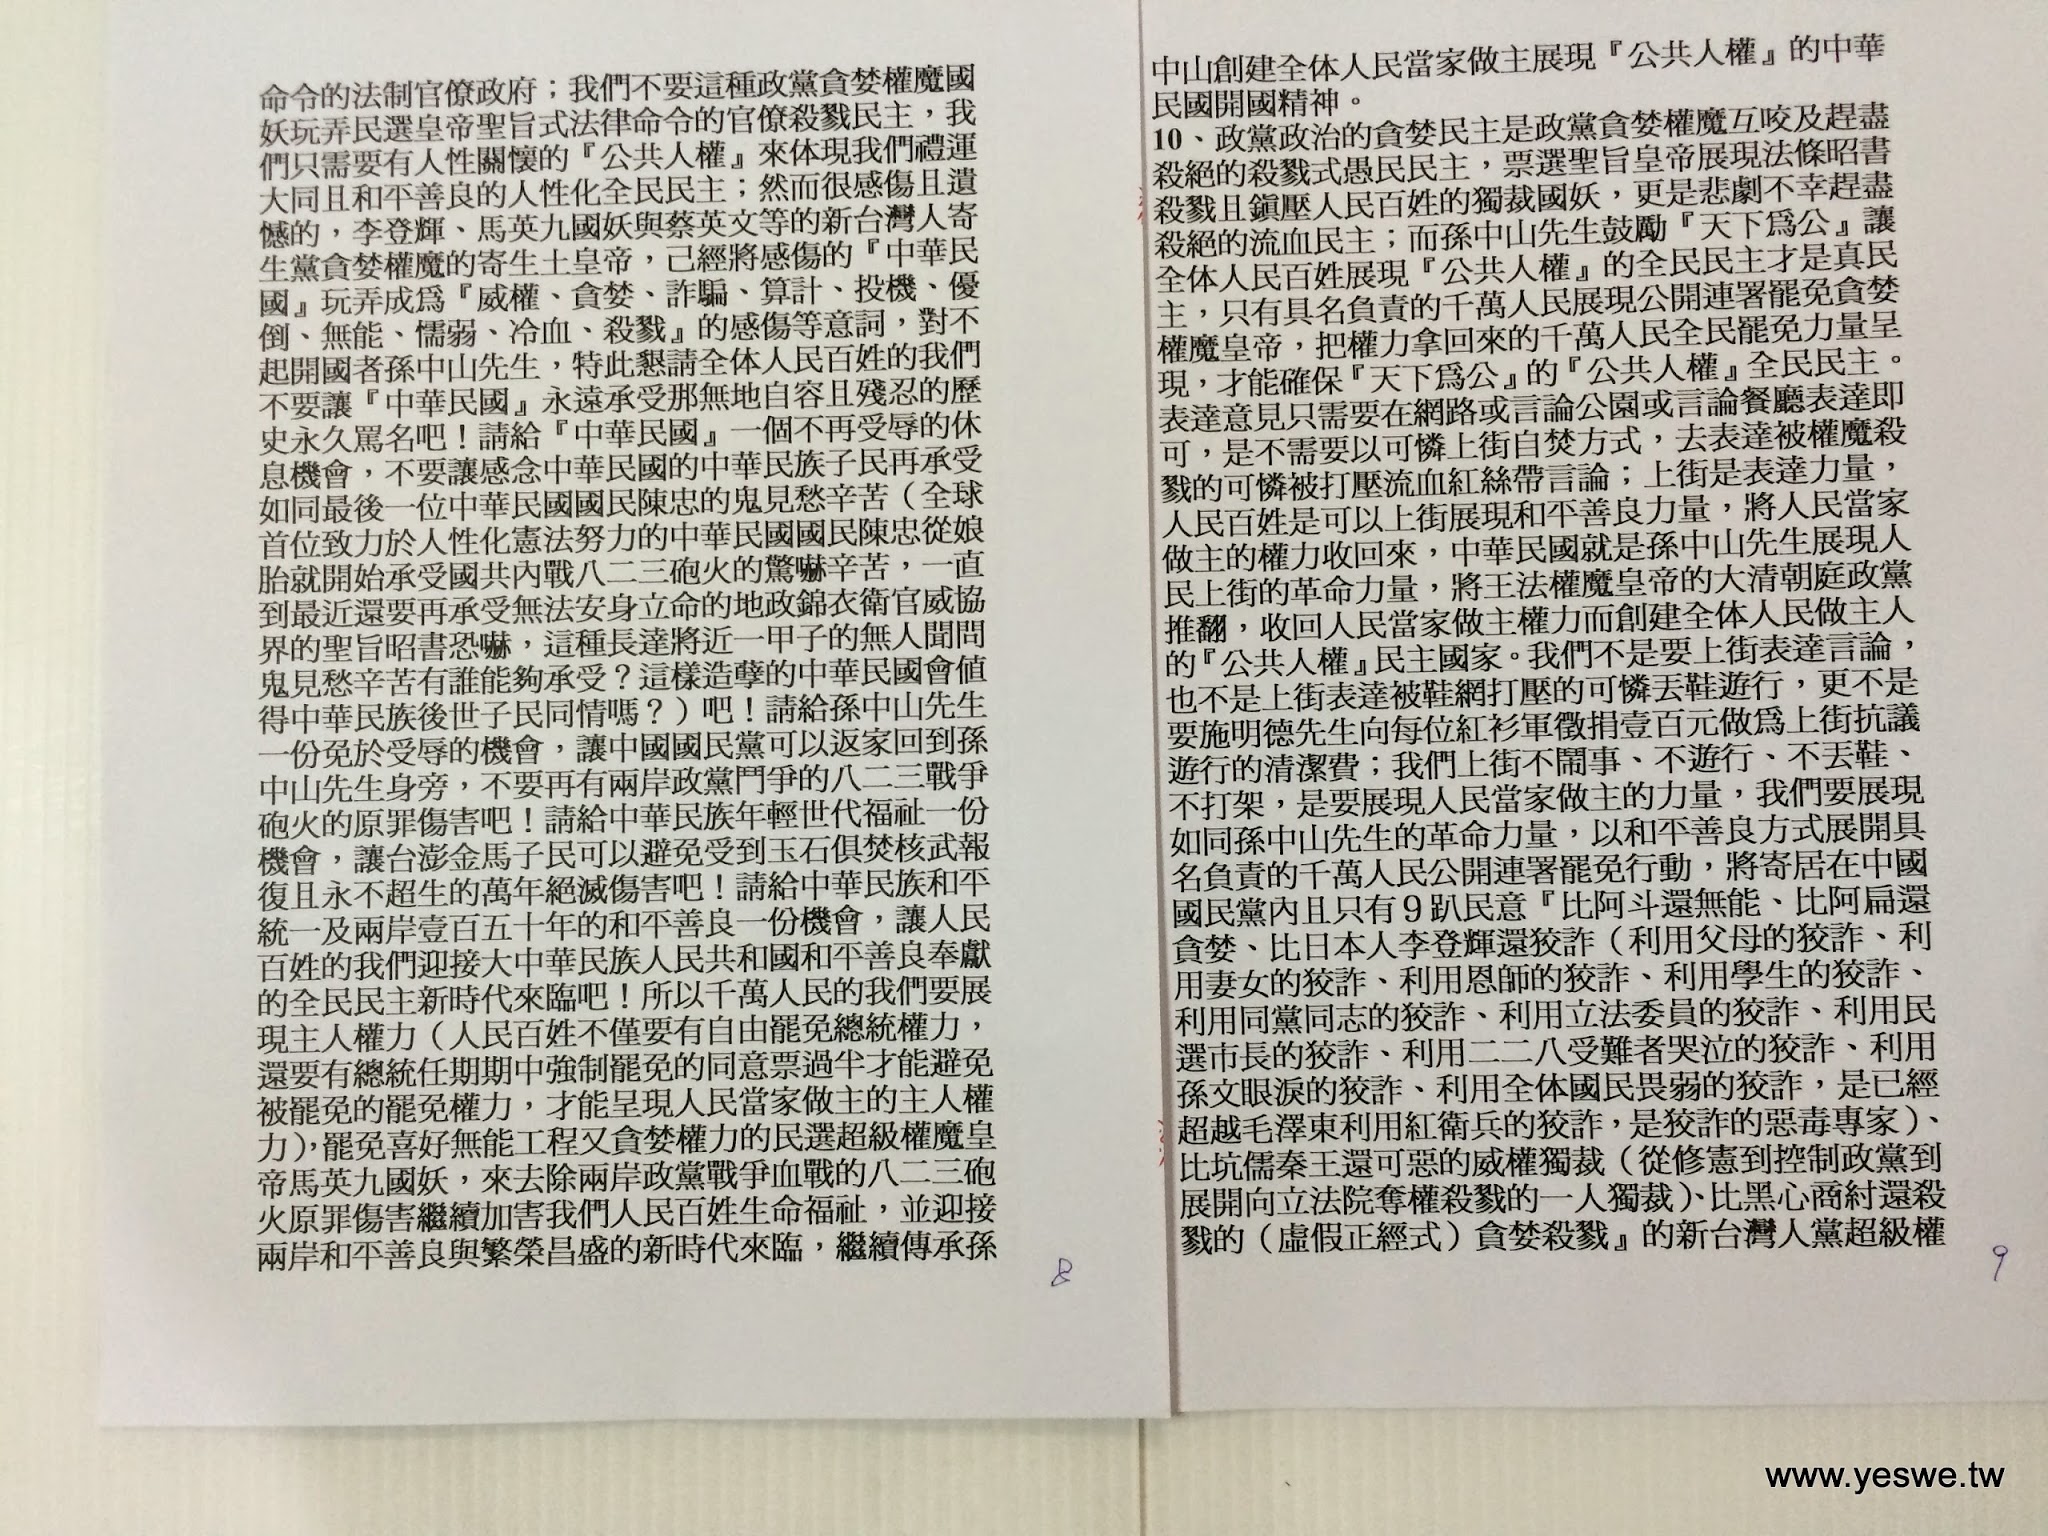 命令的法制官僚政府；我們不要這種政黨貪婪權魔國
妖玩弄民選皇帝聖旨式法律命令的官僚殺戮民主，我
們只需要有人性關懷的『公共人權』來体現我們禮運
大同且和平善良的人性化全民民主；然而很感傷且遺
憾的，李登輝、馬英九國妖與蔡英文等的新台灣人寄
生黨貪婪權魔的寄生土皇帝，己經將感傷的『中華民
國』玩弄成為『威權、貪婪、詐騙、算計、投機、優
倒、無能、懦弱、冷血、殺戮』的感傷等意詞，對不
起開國者孫中山先生，特此懇請全体人民百姓的我們
不要讓『中華民國』永遠承受那無地自容且殘忍的歷
史永久罵名吧！請給『中華民國』一個不再受辱的休
息機會，不要讓感念中華民國的中華民族子民再承受
如同最後一位中華民國國民陳忠的鬼見愁辛苦（全球
首位致力於人性化憲法努力的中華民國國民陳忠從娘
胎就開始承受國共內戰八二三砲火的驚嚇辛苦，一直
到最近還要再承受無法安身立命的地政錦衣衛官威協
界的聖旨昭書恐嚇，這種長達將近一甲子的無人聞問
鬼見愁辛苦有誰能夠承受？這樣造孽的中華民國會值
得中華民族後世子民同情嗎？）吧！請給孫中山先生
一份免於受辱的機會，讓中國國民黨可以返家回到孫
中山先生身旁，不要再有兩岸政黨鬥爭的八二三戰爭
砲火的原罪傷害吧！請給中華民族年輕世代福祉一份
機會，讓台澎金馬子民可以避免受到玉石俱焚核武報
復且永不超生的萬年絕滅傷害吧！請給中華民族和平
統一及兩岸壹百五十年的和平善良一份機會，讓人民
百姓的我們迎接大中華民族人民共和國和平善良奉獻
的全民民主新時代來臨吧！所以千萬人民的我們要展
現主人權力（人民百姓不僅要有自由罷免總統權力，
還要有總統任期期中強制罷免的同意票過半才能避免
被罷免的罷免權力，才能呈現人民當家做主的主人權
力），罷免喜好無能工程又貪婪權力的民選超級權魔皇
帝馬英九國妖，來去除兩岸政黨戰爭血戰的八二三砲
火原罪傷害繼續加害我們人民百姓生命福祉，並迎接
兩岸和平善良與繁榮昌盛的新時代來臨，繼續傳承孫
8
中山創建全体人民當家做主展現『公共人權』的中華
民國開國精神。
10、政黨政治的貪婪民主是政黨貪婪權魔互咬及趕盡
殺絕的殺戮式愚民民主，票選聖旨皇帝展現法條昭書
殺戮且鎮壓人民百姓的獨裁國妖，更是悲劇不幸趕盡
殺絕的流血民主；而孫中山先生鼓勵『天下為公』讓
全体人民百姓展現『公共人權』的全民民主才是真民
主，只有具名負責的千萬人民展現公開連署罷免貪婪
權魔皇帝，把權力拿回來的千萬人民全民罷免力量呈
現，才能確保『天下為公』的『公共人權』全民民主。
表達意見只需要在網路或言論公園或言論餐廳表達即
可，是不需要以可憐上街自焚方式，去表達被權魔殺
戮的可憐被打壓流血紅絲帶言論；上街是表達力量，
人民百姓是可以上街展現和平善良力量，將人民當家
做主的權力收回來，中華民國就是孫中山先生展現人
民上街的革命力量，將王法權魔皇帝的大清朝庭政黨
推翻，收回人民當家做主權力而創建全体人民做主人
的『公共人權』民主國家。我們不是要上街表達言論，
也不是上街表達被鞋網打壓的可憐丟鞋遊行，更不是
要施明德先生向每位紅衫軍徵捐壹百元做為上街抗議
遊行的清潔費；我們上街不鬧事、不遊行、不丟鞋、
不打架，是要展現人民當家做主的力量，我們要展現
如同孫中山先生的革命力量，以和平善良方式展開具
名負責的千萬人民公開連署罷免行動，將寄居在中國
國民黨內且只有９趴民意『比阿斗還無能、比阿扁還
貪婪、比日本人李登輝還狡詐（利用父母的狡詐、利
用妻女的狡詐、利用恩師的狡詐、利用學生的狡詐、
利用同黨同志的狡詐、利用立法委員的狡詐、利用民
選市長的狡詐、利用二二八受難者哭泣的狡詐、利用
孫文眼淚的狡詐、利用全体國民畏弱的狡詐，是已經
超越毛澤東利用紅衛兵的狡詐，是狡詐的惡毒專家）、
比坑儒秦王還可惡的威權獨裁（從修憲到控制政黨到
展開向立法院奪權殺戮的一人獨裁）、比黑心商紂還殺
戮的（虛假正經式）貪婪殺戮』的新台灣人黨超級權
9
www.yeswe.tw